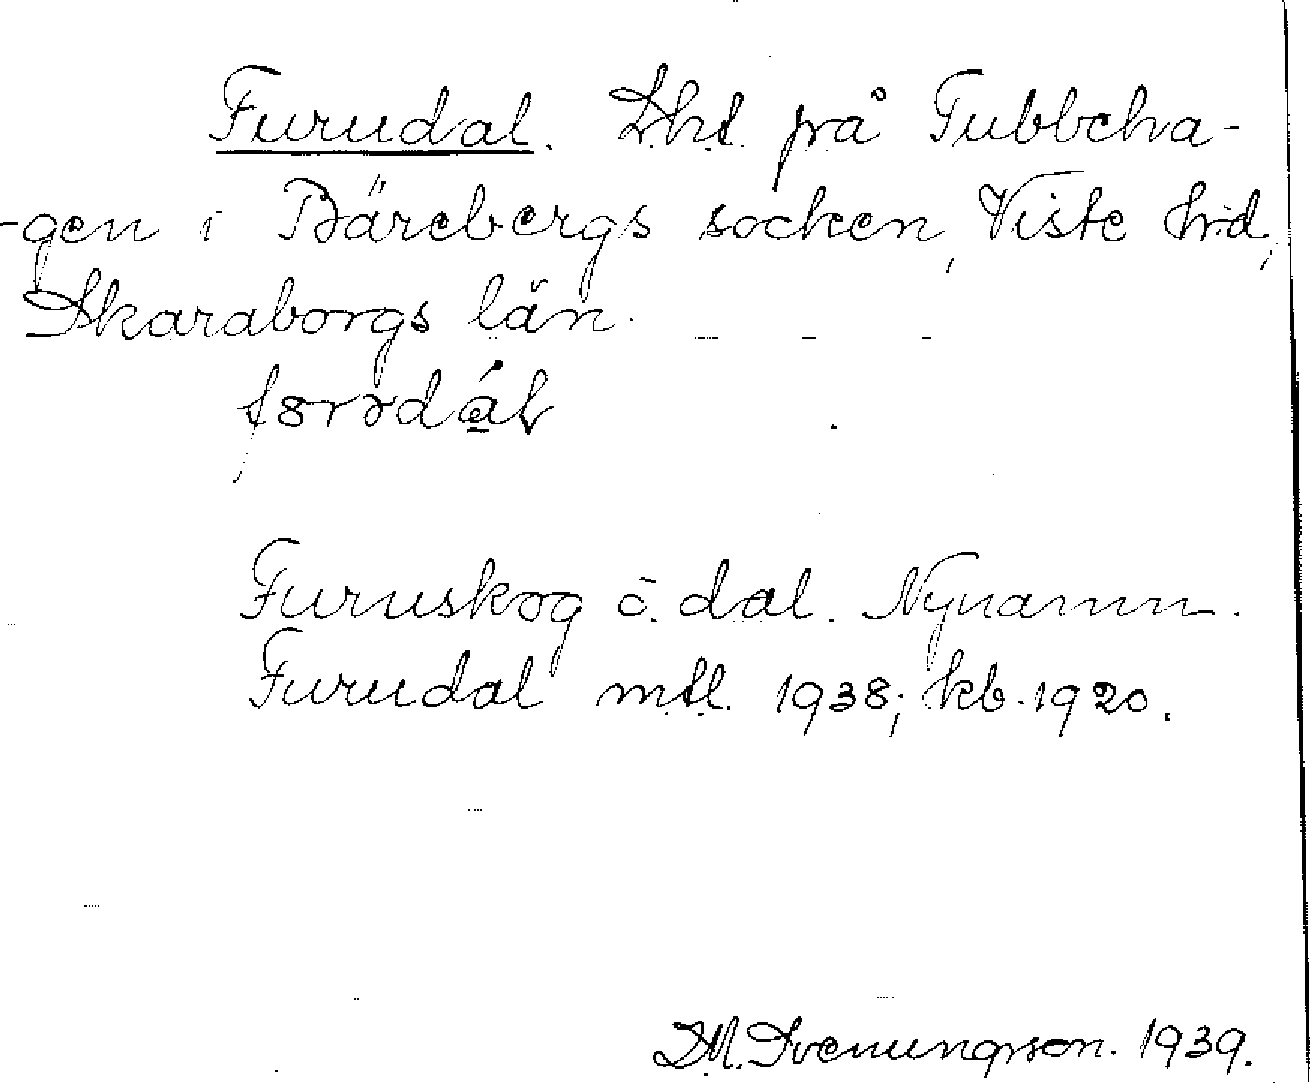 Furudal. Lht på Tubbeha-
-gen i Bärebergs socken, Viste hd,
Skaraborgs län.
Furuskog o. dal. Nynamn.
Furudal mtl. 1938; kb. 1920.
M. Svenungson. 1939.